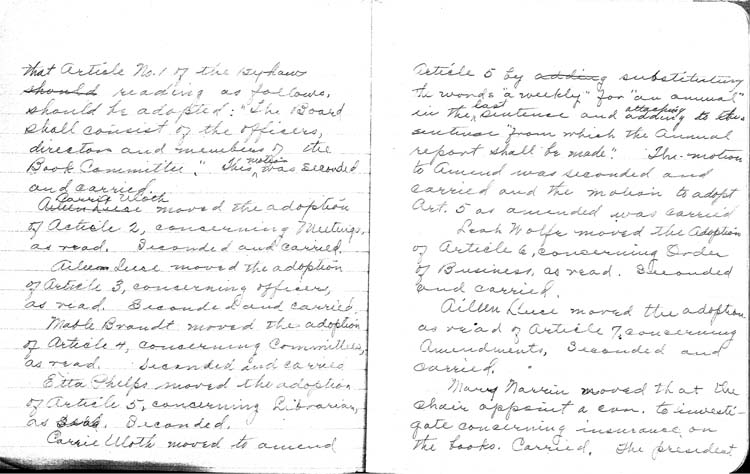 that Article No. 1 of the Bylaws
should reading as follows,
should be adopted: "The Board
shall consist of the officers,
directors and members of the
Book Committee." This motion was seconded
and carried.
Carrie Woth
Aileen Luse moved the adoption
of Acticle 2, concerning Meetings,
as read. Seconded and carried.
Aileen Luse moved the adoption
of Article 3, concerning officers,
as read. Seconded and carried
Mable Brandt moved the adoption
of Article 4, concerning Committees,
as read. Seconded and carried
Etta Phelps moved the adoption
of Article 5, concerning Librarian,
as. Seconded.
Carrie Woth moved to amend
Article 5 by adding substituting
the words "a weekly" for "an annual"
in the last sentence and adding attaching to this
sentence "from which the Annual
report shall be made". The motion
to Amend was seconded and
carried and the motion to adopt
Art. 5 as amended was carried
Leah Wolfe moved the Adoption
of Article 6, concerning Order
of Business, as read. Seconded
and carried.
Aileen Luse moved the adoption
as read of Article 7, concerning
Amendments, Seconded and
carried.
Mary Narrin moved that the
chair appoint a com. to investi-
gate concerning insurance on
the books. Carried. The president